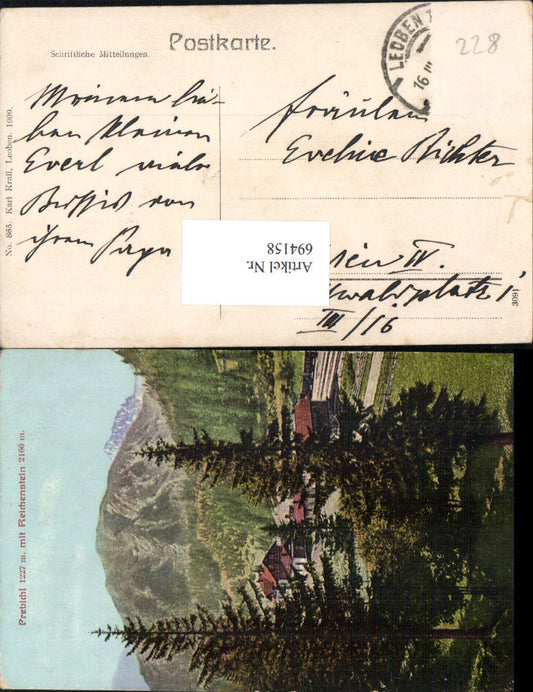 Postkarte.
Schriftliche Mitteilungen.
LEOBEN 1
16 III
228
Meinem lie-
ben kleinen
Everl viele
Bussis von
ihrem Papa
Fräulein
Eveline Richter
Wien IV.
waldplatz 1
III/16
Artikel Nr.
694158
No. 865. Karl Krall, Leoben. 1909.
3091
Prebichl 1227 m. mit Reichenstein 2166 m.